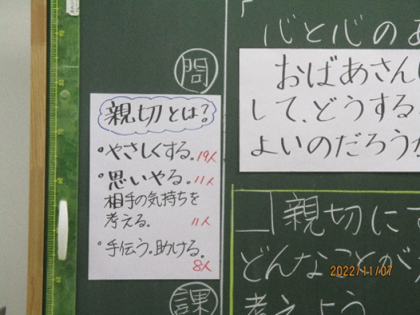 問
親切とは?
・やさしくする。19人
・思いやる。11人
相手の気持ちを
考える。 11人
・手伝う。助ける。
8人
課
心と心のあ
おばあさん
して、どうする
よいのだろうか
親切に
どんなことが
考えよう
2022/11/07